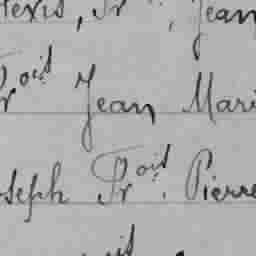 lexis, Fr , Jean
Frois Jean Mari
oseph Frois. Pierre